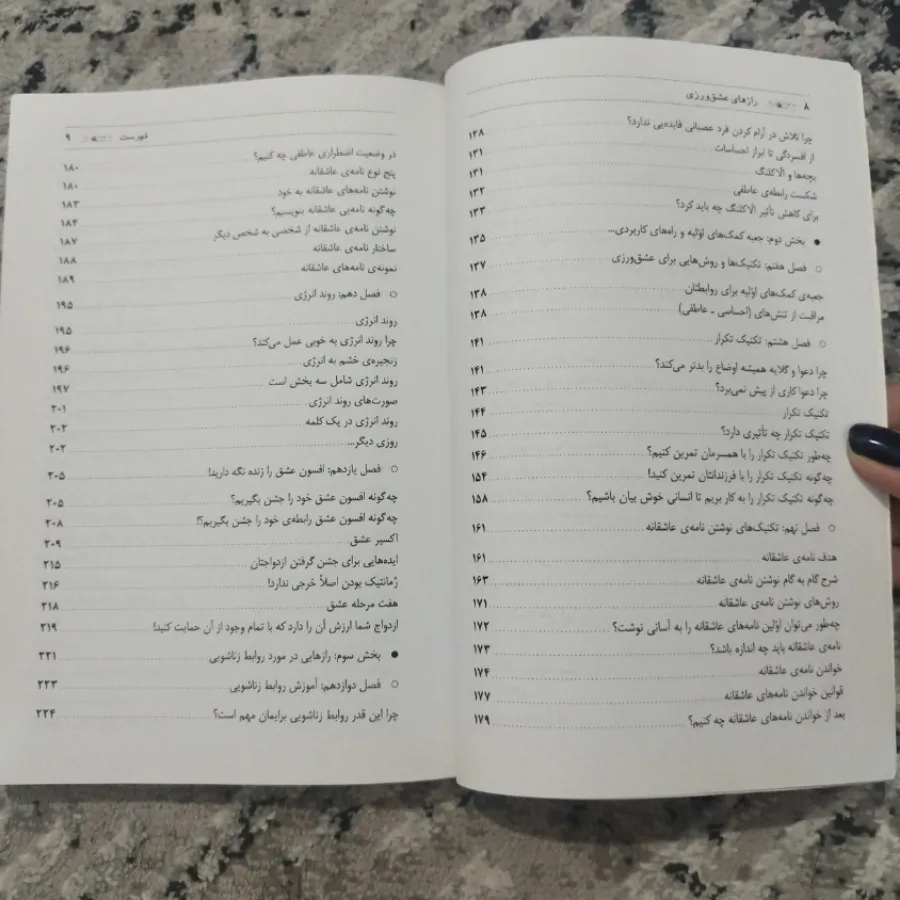 ۸ رازهای عشق‌ورزی
چرا تلاش در آرام کردن فرد عصبانی فایده‌یی ندارد؟ ۱۲۸
از افسردگی تا ابراز احساسات ۱۳۱
بچه‌ها و الّاکلنگ ۱۳۱
شکست رابطه‌ی عاطفی ۱۳۲
برای کاهش تأثیر الّاکلنگ چه باید کرد؟ ۱۳۳
● بخش دوم: جعبه کمک‌های اوّلیه و راه‌های کاربردی... ۱۳۵
○ فصل هفتم: تکنیک‌ها و روش‌هایی برای عشق‌ورزی ۱۳۷
جعبه‌ی کمک‌های اوّلیه برای روابطتان ۱۳۸
مراقبت از تنش‌های (احساسی ـ عاطفی) ۱۳۸
○ فصل هشتم: تکنیک تکرار ۱۴۱
چرا دعوا و گلایه همیشه اوضاع را بدتر می‌کند؟ ۱۴۱
چرا دعوا کاری از پیش نمی‌برد؟ ۱۴۳
تکنیک تکرار ۱۴۴
تکنیک تکرار چه تأثیری دارد؟ ۱۴۵
چه‌طور تکنیک تکرار را با همسرمان تمرین کنیم؟ ۱۴۶
چه‌گونه تکنیک تکرار را با فرزندانتان تمرین کنید! ۱۵۴
چه‌گونه تکنیک تکرار را به کار بریم تا انسانی خوش بیان باشیم؟ ۱۵۸
○ فصل نهم: تکنیک‌های نوشتن نامه‌ی عاشقانه ۱۶۱
هدف نامه‌ی عاشقانه ۱۶۱
شرح گام به گام نوشتن نامه‌ی عاشقانه ۱۶۳
روش‌های نوشتن نامه‌ی عاشقانه ۱۷۱
چه‌طور می‌توان اوّلین نامه‌های عاشقانه را به آسانی نوشت؟ ۱۷۲
نامه‌ی عاشقانه باید چه اندازه باشد؟ ۱۷۳
خواندن نامه‌ی عاشقانه ۱۷۴
قوانین خواندن نامه‌های عاشقانه ۱۷۷
بعد از خواندن نامه‌های عاشقانه چه کنیم؟ ۱۷۹
فهرست ۹
در وضعیت اضطراری عاطفی چه کنیم؟ ۱۸۰
پنج نوع نامه‌ی عاشقانه ۱۸۰
نوشتن نامه‌های عاشقانه به خود ۱۸۳
چه‌گونه نامه‌یی عاشقانه بنویسیم؟ ۱۸۴
نوشتن نامه‌ی عاشقانه از شخصی به شخص دیگر ۱۸۷
ساختار نامه‌ی عاشقانه ۱۸۸
نمونه‌ی نامه‌های عاشقانه ۱۸۹
○ فصل دهم: روند انرژی ۱۹۵
روند انرژی ۱۹۵
چرا روند انرژی به خوبی عمل می‌کند؟ ۱۹۶
زنجیره‌ی خشم به انرژی ۱۹۶
روند انرژی شامل سه بخش است ۱۹۷
صورت‌های روند انرژی ۲۰۱
روند انرژی در یک کلمه ۲۰۲
روزی دیگر... ۲۰۲
○ فصل یازدهم: افسون عشق را زنده نگه دارید! ۲۰۵
چه‌گونه افسون عشق خود را جشن بگیریم؟ ۲۰۵
چه‌گونه افسون عشق رابطه‌ی خود را جشن بگیریم؟! ۲۰۸
اکسیر عشق ۲۰۹
ایده‌هایی برای جشن گرفتن ازدواجتان ۲۱۵
رُمانتیک بودن اصلاً خرجی ندارد! ۲۱۶
هفت مرحله عشق ۲۱۸
ازدواج شما ارزش آن را دارد که با تمام وجود از آن حمایت کنید! ۲۱۹
● بخش سوم: رازهایی در مورد روابط زناشویی ۲۲۱
○ فصل دوازدهم: آموزش روابط زناشویی ۲۲۳
چرا این قدر روابط زناشویی برایمان مهم است؟ ۲۲۴